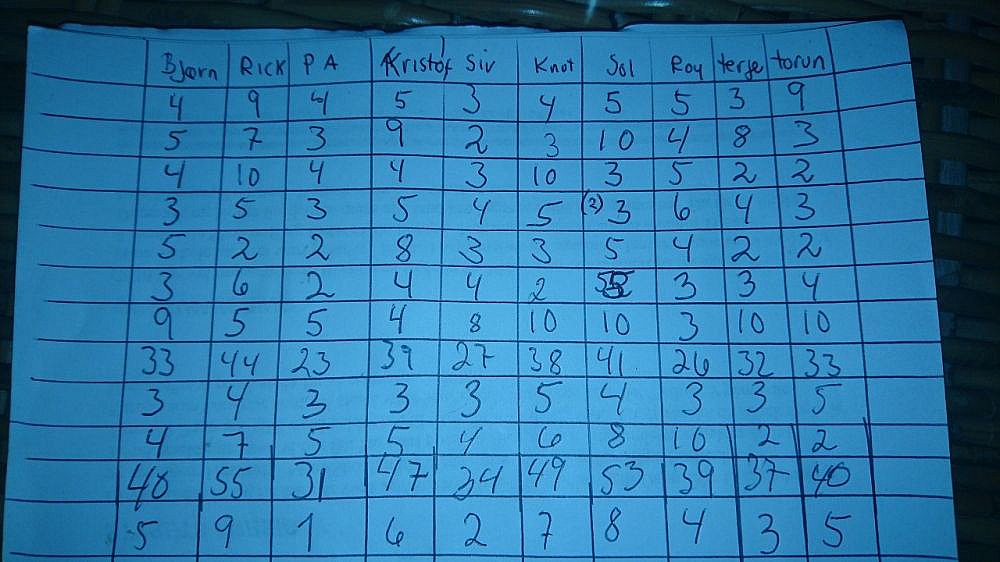 Bjørn Rick PA Kristof Siv Knot Sol Roy terje torun
4 9 4 5 3 4 5 5 3 9
5 7 3 9 2 3 10 4 8 3
4 10 4 4 3 10 3 5 2 2
3 5 3 5 4 5 (2) 3 6 4 3
5 2 2 8 3 3 5 4 2 2
3 6 2 4 4 2 3 3 4
9 5 5 4 8 10 10 3 10 10
33 44 23 39 27 38 41 26 32 33
3 4 3 3 3 5 4 3 3 5
4 7 5 5 4 6 8 10 2 2
40 55 31 47 34 49 53 39 37 40
5 9 1 6 2 7 8 4 3 5